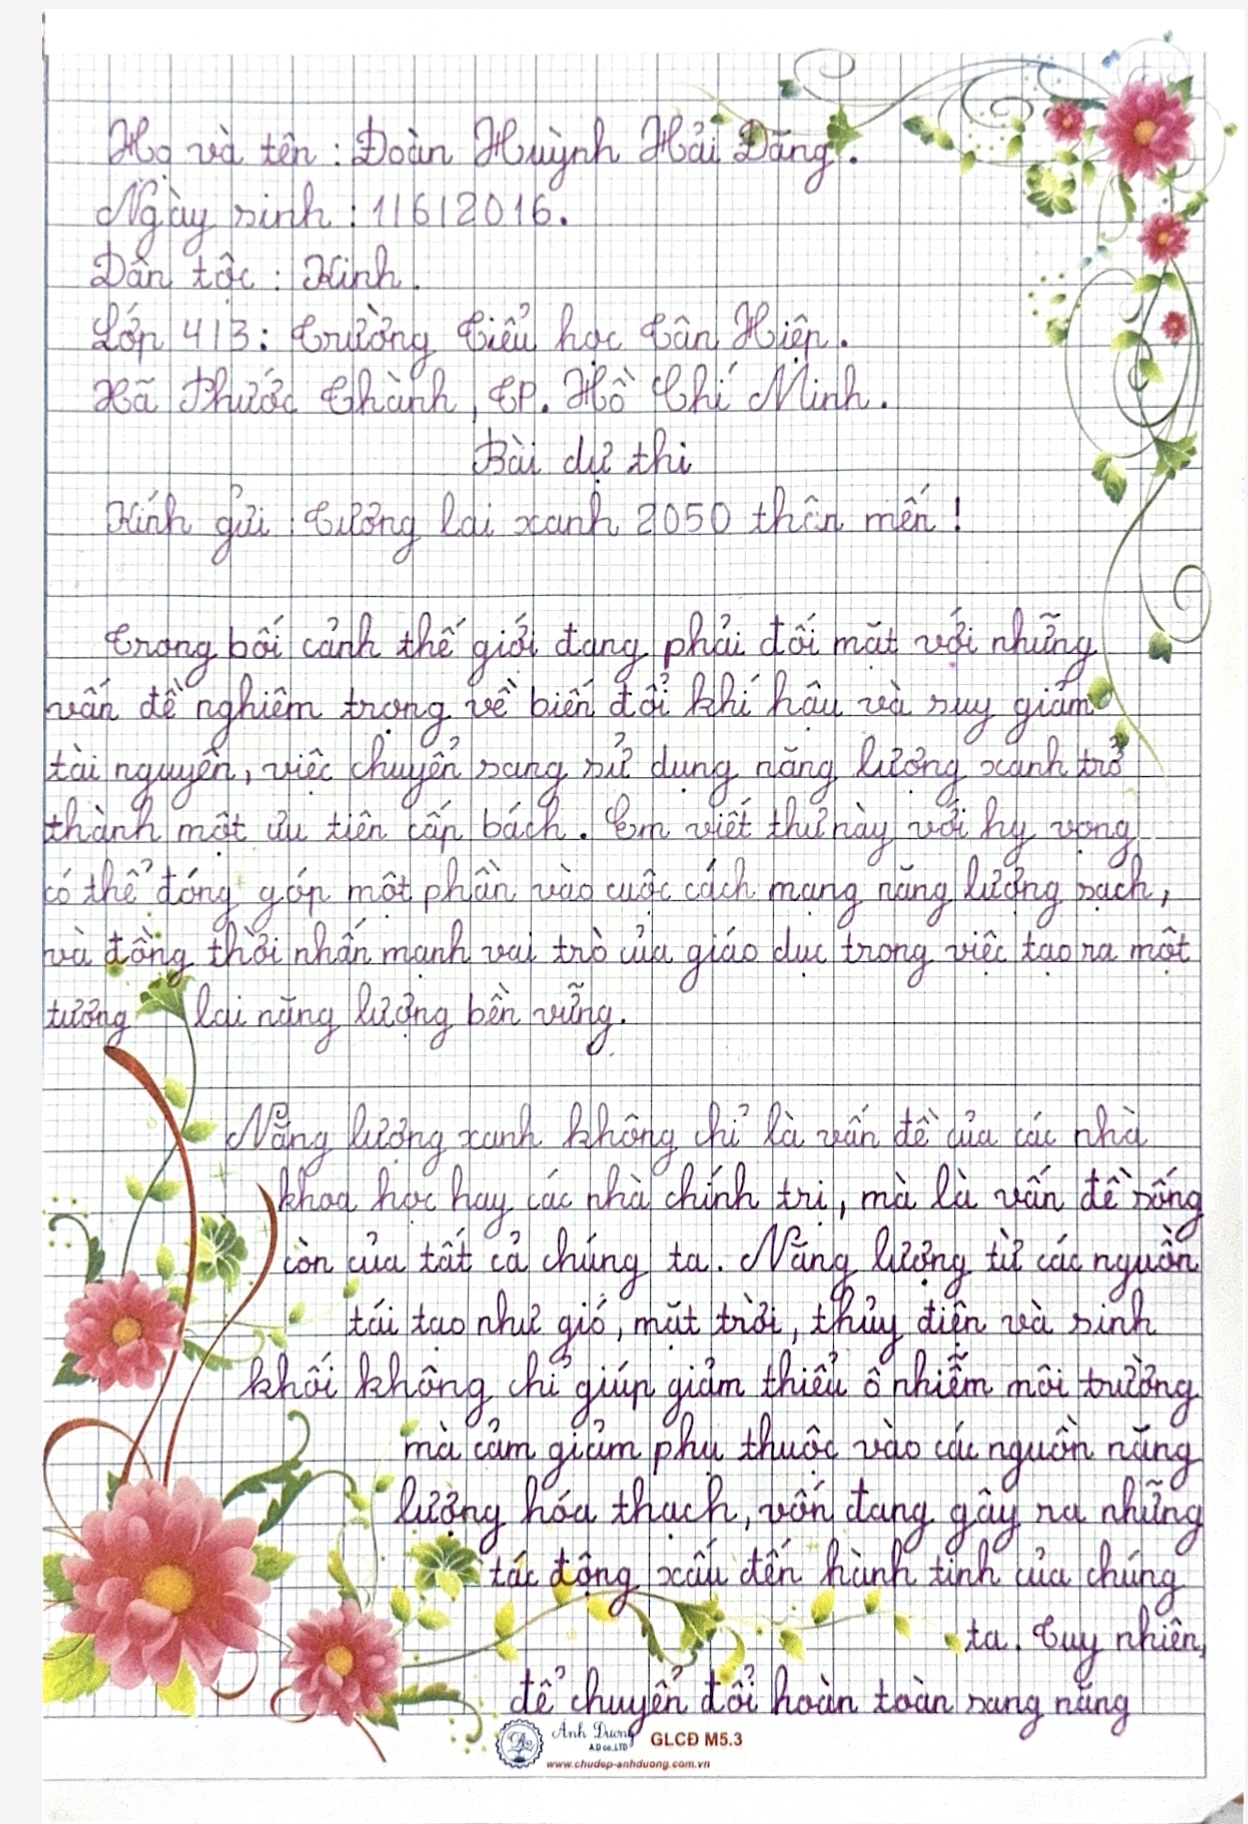 Họ và tên : Đoàn Huỳnh Hải Đăng.
Ngày sinh : 11612016.
Dân tộc : Kinh.
Lớp 413 : Trường Tiểu học Tân Hiệp.
Xã Phước Thành, TP. Hồ Chí Minh.
Bài dự thi
Kính gửi : Tương lai xanh 2050 thân mến !
Trong bối cảnh thế giới đang phải đối mặt với những
vấn đề nghiêm trọng về biến đổi khí hậu và suy giảm
tài nguyên, việc chuyển sang sử dụng năng lượng xanh trở
thành một ưu tiên cấp bách. Em viết thư này với hy vọng
có thể đóng góp một phần vào cuộc cách mạng năng lượng sạch,
và đồng thời nhấn mạnh vai trò của giáo dục trong việc tạo ra một
tương lai năng lượng bền vững.
Năng lượng xanh không chỉ là vấn đề của các nhà
khoa học hay các nhà chính trị, mà là vấn đề sống
còn của tất cả chúng ta. Năng lượng từ các nguồn
tái tạo như gió, mặt trời, thủy điện và sinh
khối không chỉ giúp giảm thiểu ô nhiễm môi trường
mà cảm giảm phụ thuộc vào các nguồn năng
lượng hóa thạch, vốn đang gây ra những
tác động xấu đến hành tinh của chúng
ta. Tuy nhiên,
để chuyển đổi hoàn toàn sang năng
Ánh Dương GLCĐ M5.3
A.D co.,LTD
www.chudep-anhduong.com.vn